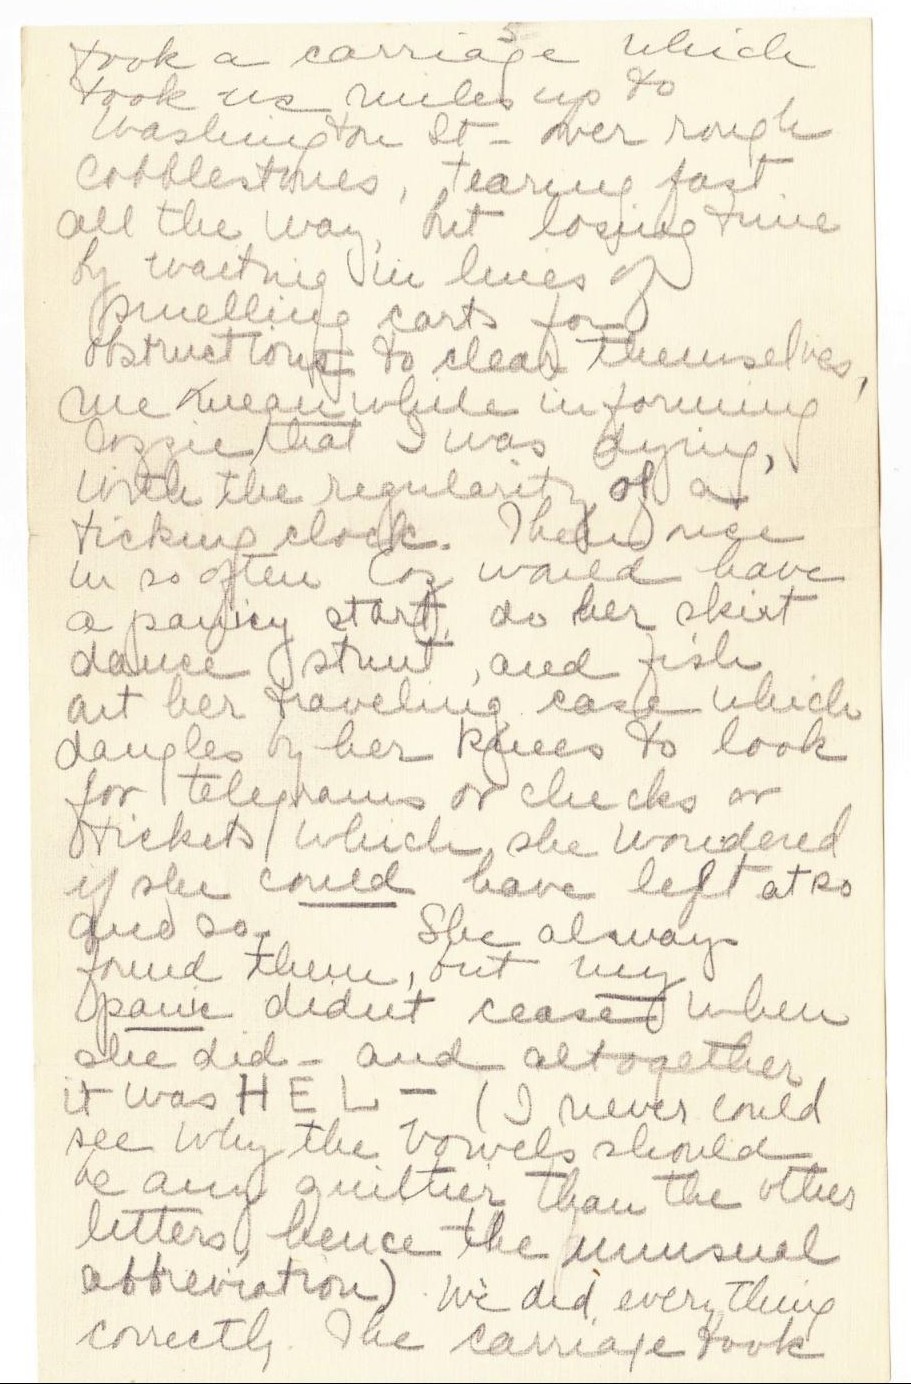 5
took a carriage which
took us miles up to
Washington St - over rough
cobblestones, tearing fast
all the way, but losing time
by waiting in lines of
smelling carts for
obstructions to clear themselves,
me meanwhile informing
Cozzie that I was dying,
with the regularity of a
ticking clock. Then once
in so often Coz would have
a panicy start, do her skirt
dance stunt, and fish
out her traveling case which
dangles by her knees to look
for telegrams or checks or
tickets which she wondered
if she could have left at so
and so. She always
found them, but my
panic didn't cease when
she did - and altogether
it was H E L - (I never could
see why the vowels should
be any guiltier than the other
letters, hence the unusual
abbreviation) We did everything
correctly. The carriage took